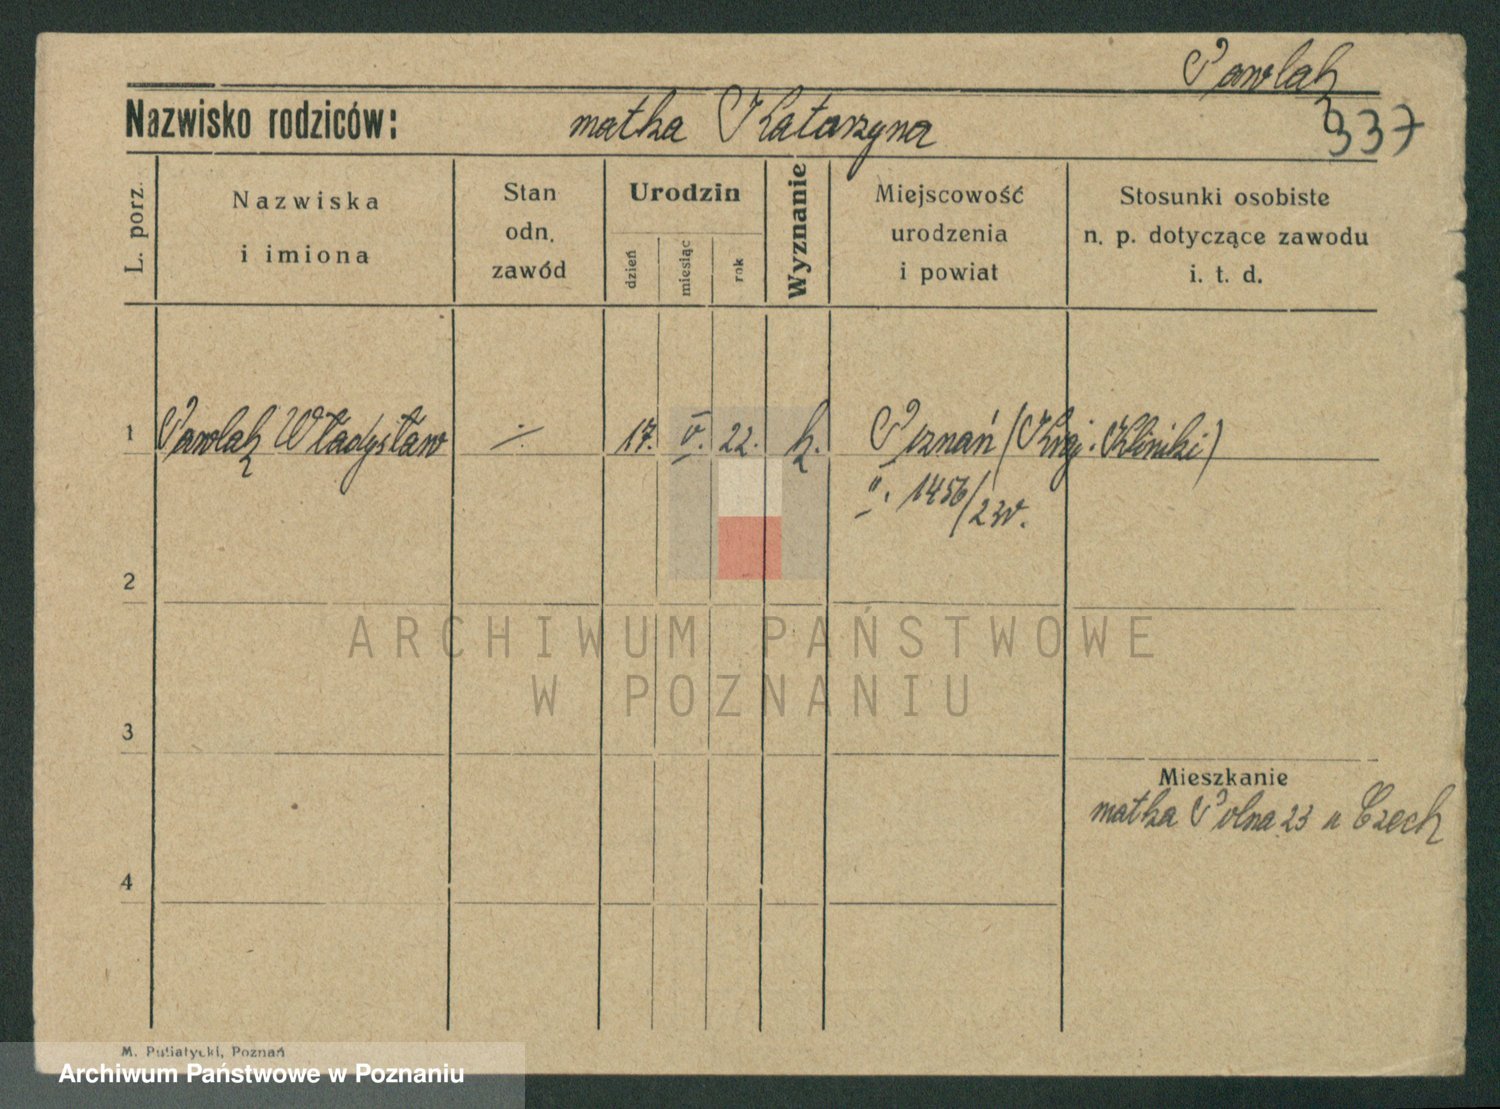 Pawlak
Nazwisko rodziców: matka Katarzyna
937
L. porz.
Nazwiska
i imiona
Stan
odn.
zawód
Urodzin
dzień
miesiąc
rok
Wyznanie
Miejscowość
urodzenia
i powiat
Stosunki osobiste
n. p. dotyczące zawodu
i. t. d.
1 Pawlak Władysław ·/· 17. V. 22. k. Poznań (Kraj. Kliniki)
II. 1456/23r.
2
ARCHIWUM PAŃSTWOWE
W POZNANIU
3
Mieszkanie
matka Polna 23 u Czech
4
M. Putiatycki, Poznań
Archiwum Państwowe w Poznaniu